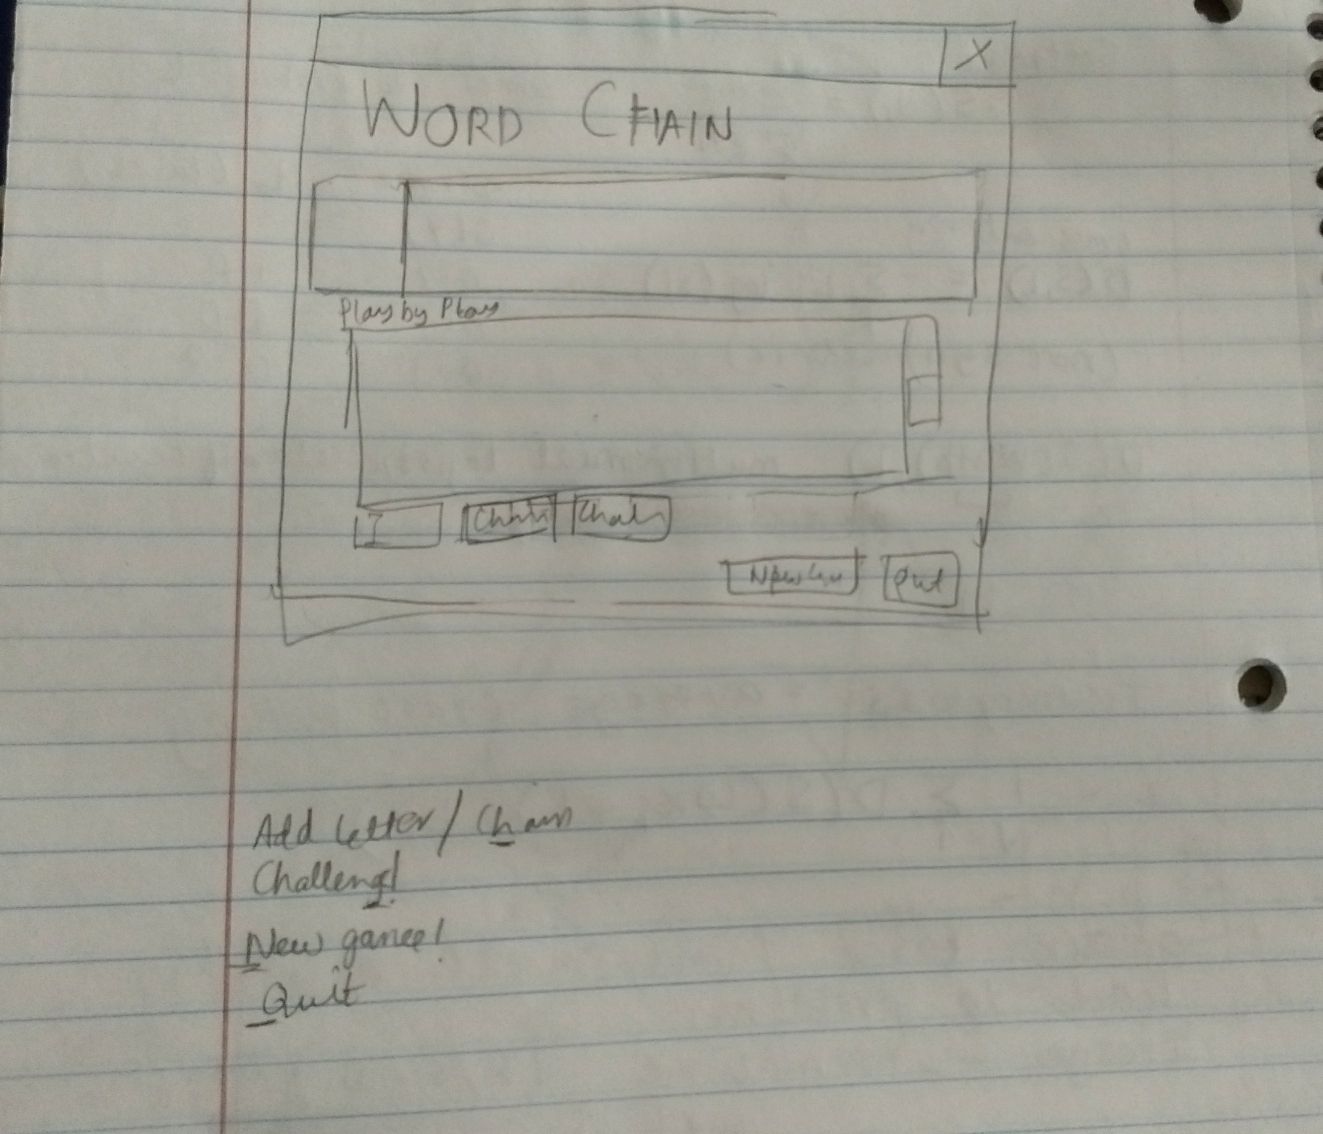 X
WORD CHAIN
Play by Play
I Chain Chalen
New Ga Quit
Add letter / Chain
Challeng!
New game!
Quit